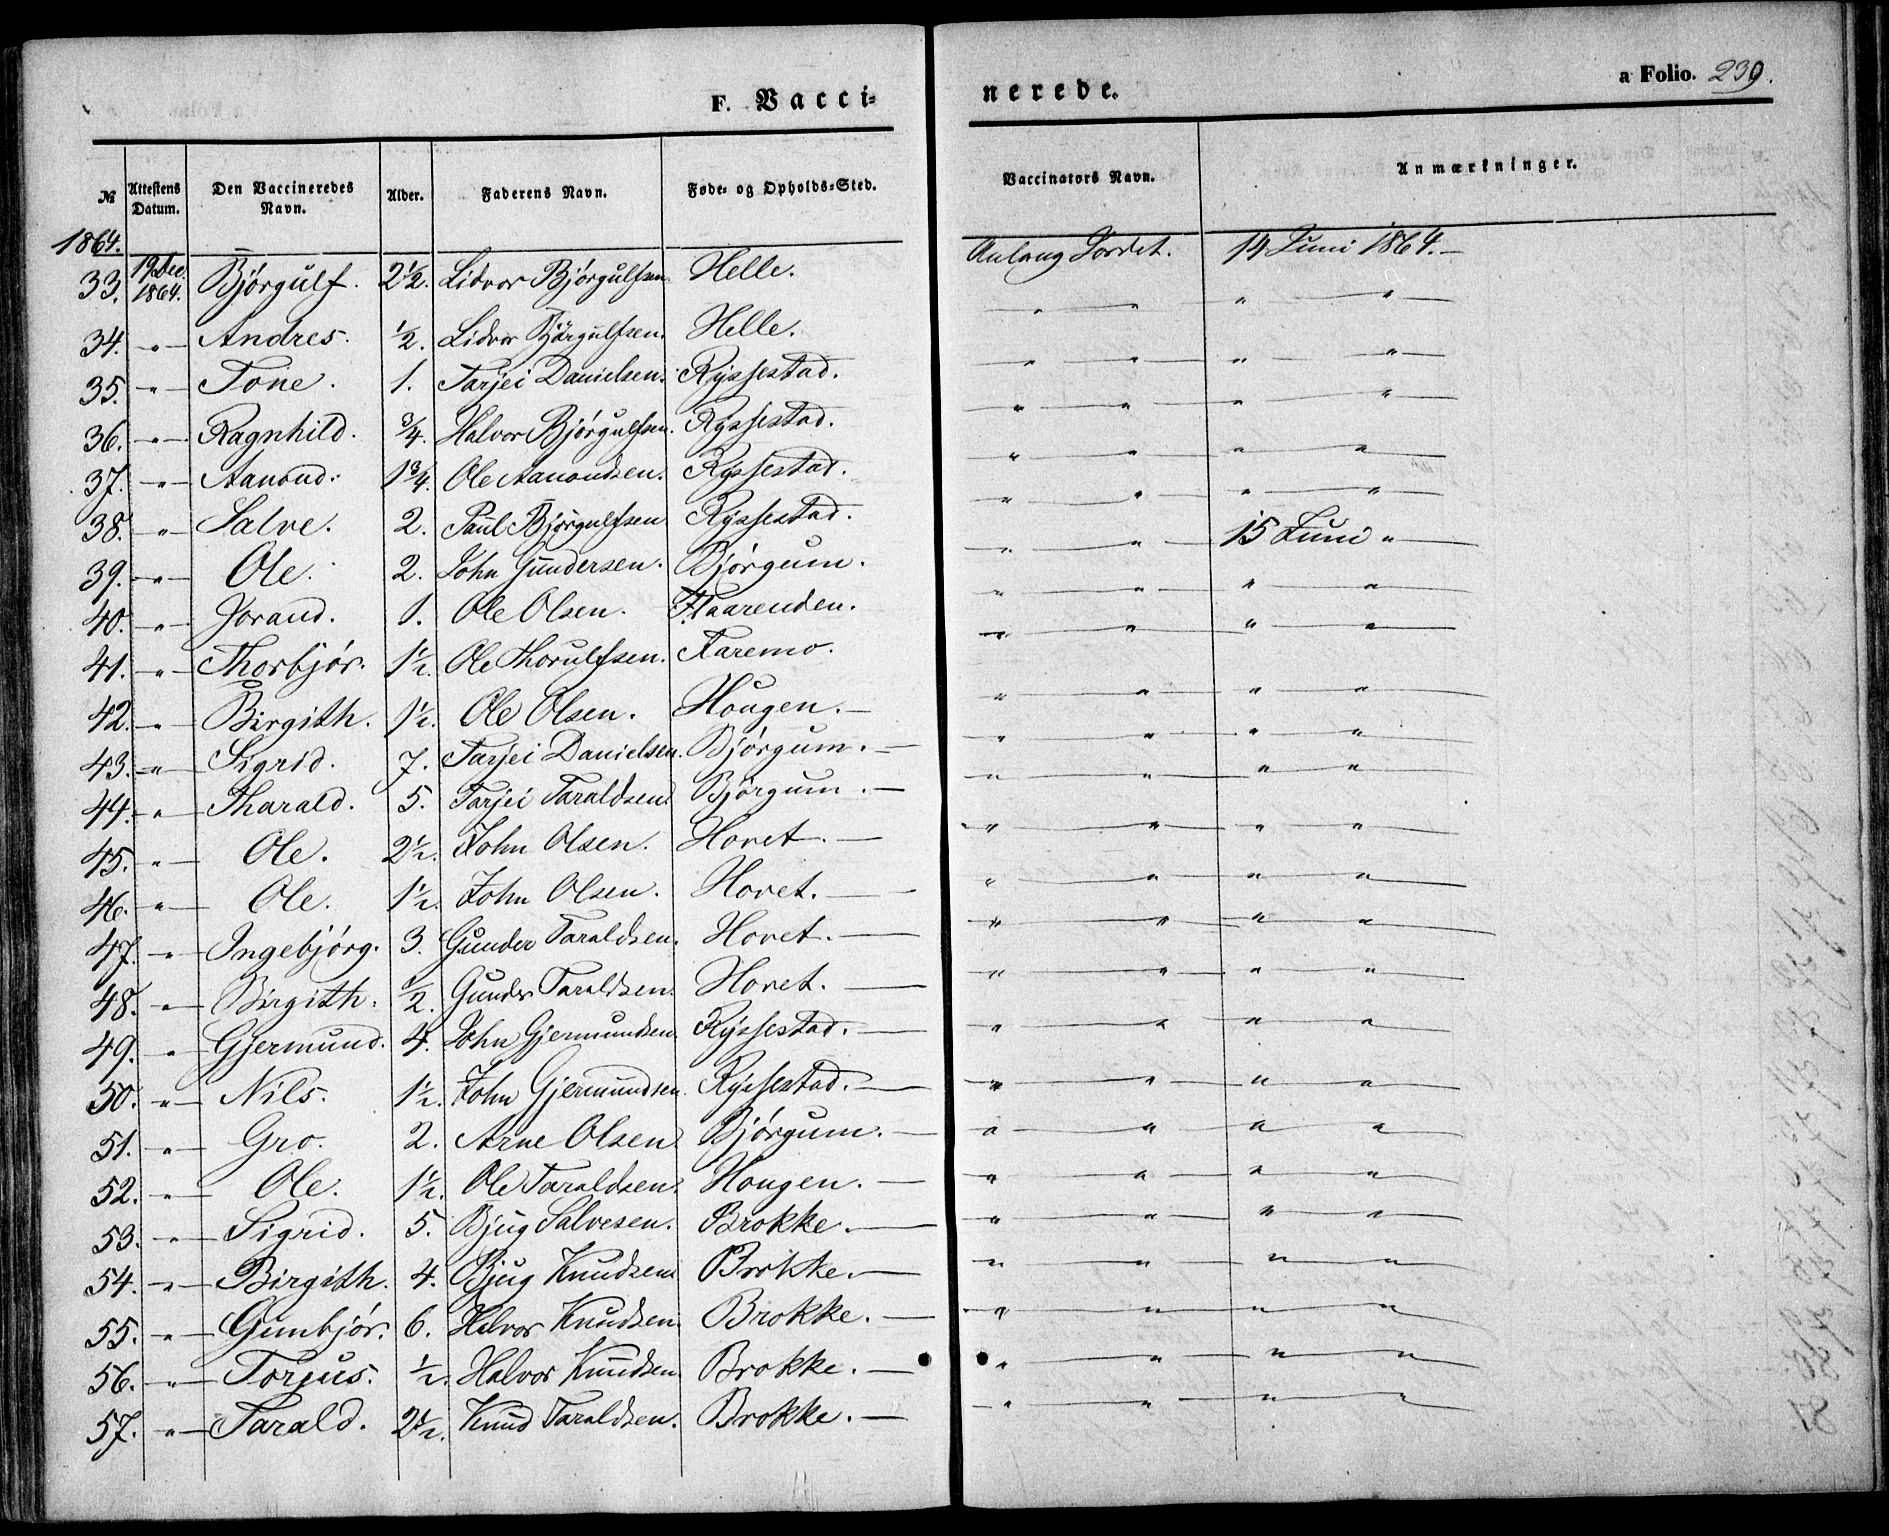 F. Vacci=
nerede.
a Folio. 239.
№ Attestens Datum. Den Vaccineredes Navn. Alder. Faderens Navn. Føde- og Opholds-Sted. Vaccinators Navn. Anmærkninger.
1864.
33. 19 Dec. 1864. Bjørgulf. 2 1/2. Lidvor Bjørgulfsen. Helle. Aulong Jordet. 14 Juni 1864. —
34. — " — Andres. 1/2. Lidvor Bjørgulfsen. Helle. " " " "
35. — " — Tone. 1. Tarjei Danielsen. Ryssestad. " " " "
36. — " — Ragnhild. 3/4. Halvor Bjørgulfsen. Ryssestad. " " " "
37. — " — Aanond. 1 3/4. Ole Aanondsen. Ryssestad. " " " "
38. — " — Salve. 2. Paul Bjørgulfsen Ryssestad. " " " "
39. — " — Ole. 2. John Gundersen. Bjørgum. " " 15 Juni "
40. — " — Jorand. 1. Ole Olsen. Flaarenden. " " " "
41. — " — Thorbjør. 1 1/2. Ole Thorulfsen. Faremo. " " " "
42. — " — Birgith. 1 1/2. Ole Olsen. Hougen. — " " " "
43. — " — Sigrid. 7. Tarjei Danielsen. Bjørgum. — " " " "
44. — " — Tharald. 5. Tarjei Taraldsen. Bjørgum. — " " " "
45. " — Ole. 2 1/2. John Olsen. Hovet. — " " " "
46. " — Ole. 1 1/2. John Olsen. Hovet. — " " " "
47. " — Ingebjørg. 3. Gunder Taraldsen. Hovet. — " " " "
48. " — Birgith. 1/2. Gunder Taraldsen. Hovet. — " " " "
49. " — Gjermund. 4. John Gjermundsen. Ryssestad. — " " " "
50. — " — Nils. 1 1/2. John Gjermundsen. Rysestad. — " " " "
51. " — Gro. 2. Arne Olsen. Bjørgum. — " " " "
52. — " — Ole. 1 1/2. Ole Taraldsen. Hougen. — " " " "
53. — " — Sigrid. 5. Bjug Salvesen. Brokke. — " " " "
54. — " — Birgith. 4. Bjug Knudsen. Brokke. — " " " "
55. — " — Gunbjør. 6. Halvor Knudsen. Brokke. — " " " "
56. — " — Torjus. 1/2. Halvor Knudsen. Brokke. — " " " "
57. — " — Tarald. 2 1/2. Knud Taraldsen. Brokke. — " " " "